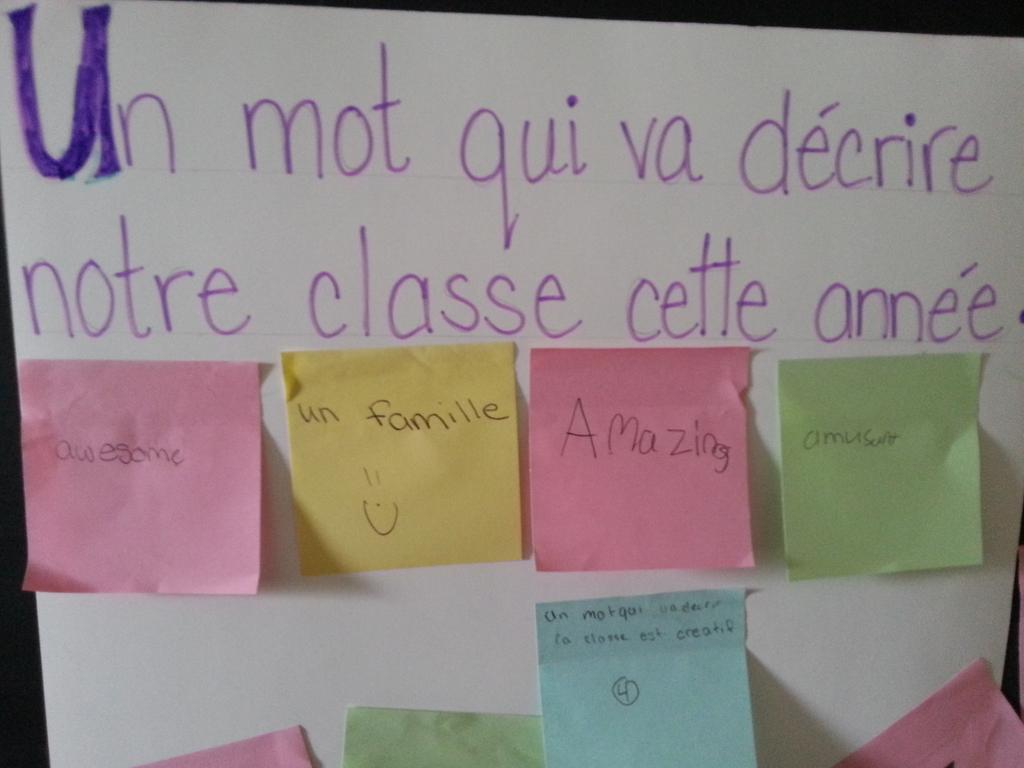 Un mot qui va décrire
notre classe cette année.
awesome
un famille
Amazing
amusant
un mot qui va decrir
la classe est creatif
4